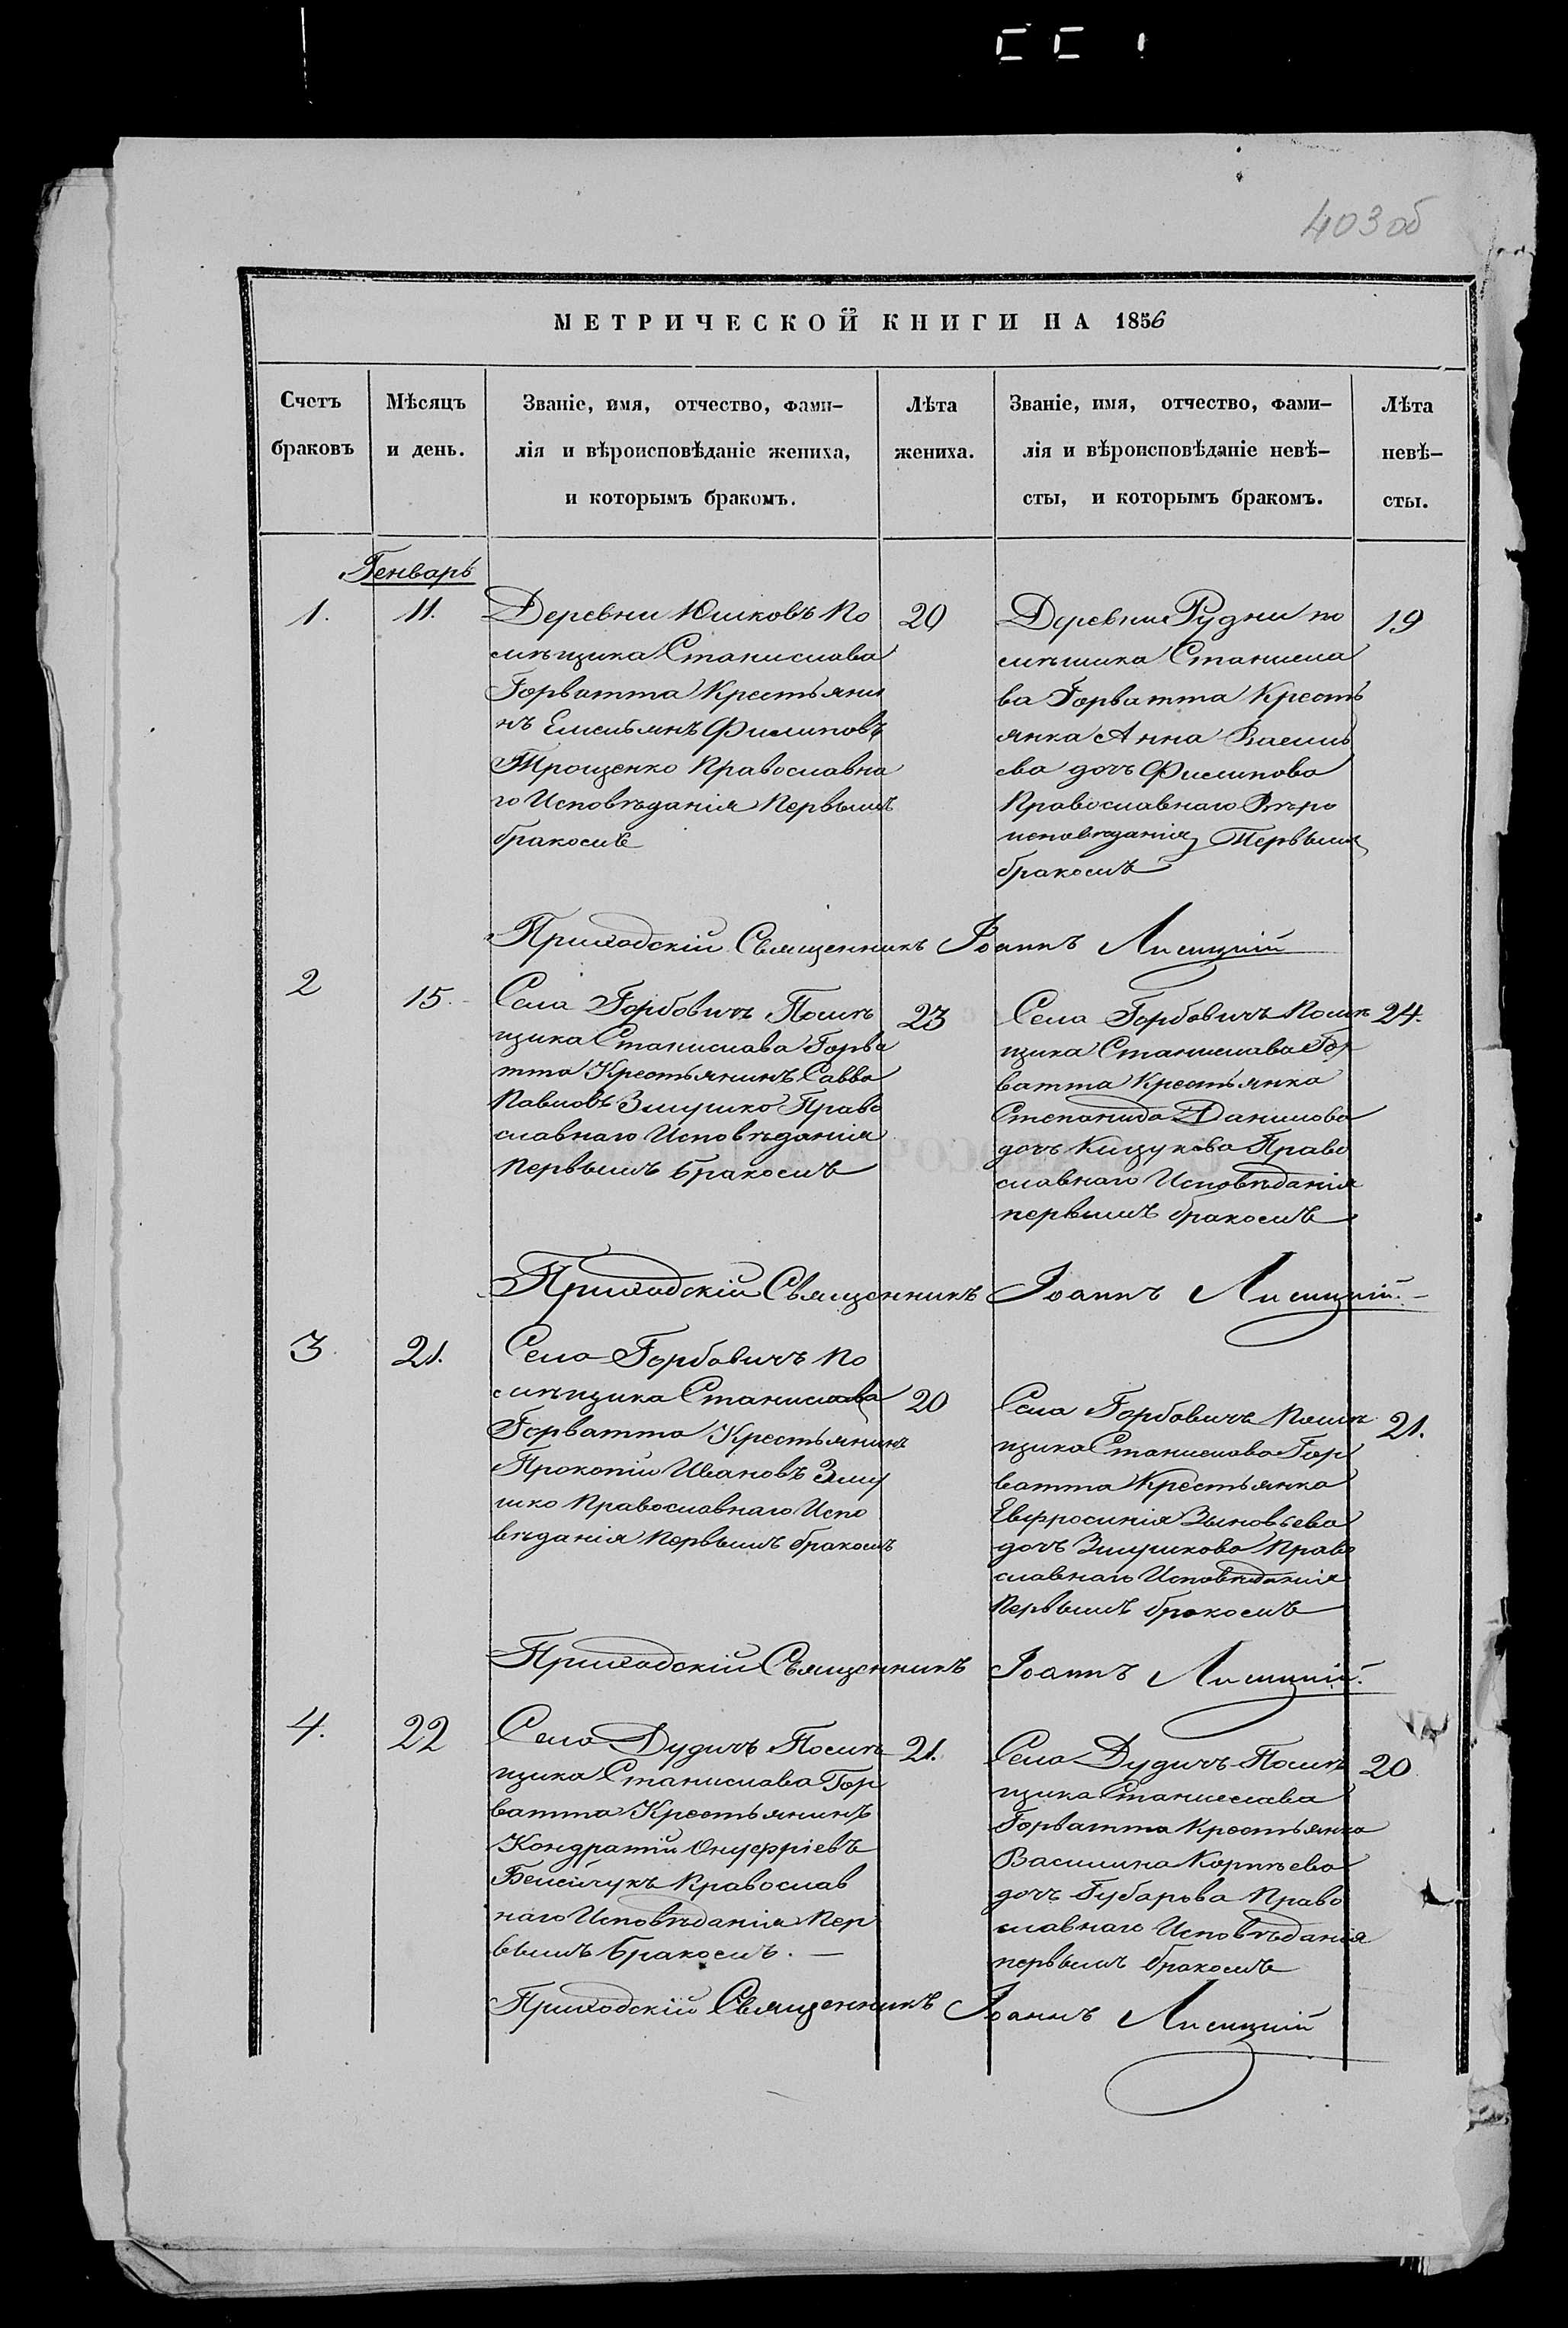 403 об
МЕТРИЧЕСКОЙ КНИГИ НА 1856
Счетъ
браковъ
Мѣсяцъ
и день.
Званіе, имя, отчество, фами-
лія и вѣроисповѣданіе жениха,
и которымъ бракомъ.
Лѣта
жениха.
Званіе, имя, отчество, фами-
лія и вѣроисповѣданіе невѣ-
сты, и которымъ бракомъ.
Лѣта
невѣ-
сты.
Генварь
1.
11.
Деревни Юшковъ По
мѣщика Станислава
Горватта Крестьяни
нъ Емельянъ Филиповъ
Трощенко Православна
го Исповѣданія Первымъ
бракомъ
20
Деревни Рудни по
мѣщика Станисла
ва Горватта Кресть
янка Анна Василь
ева дочь Филипова
Православнаго Вѣро
исповѣданія Первымъ
бракомъ
19
Приходскій Священникъ Іоаннъ Лисицкій
2
15.
Села Горбовичъ Помѣ
щика Станислава Горва
тта Крестьянинъ Савва
Павловъ Змушко Право
славнаго Исповѣданія
Первымъ Бракомъ
23
Села Горбовичъ Помѣ
щика Станислава Гор
ватта Крестьянка
Степанида Данилова
дочь Кицукова Право
славнаго Исповѣданія
первымъ бракомъ
24.
Приходскій Священникъ Іоаннъ Лисицкій.
3
21.
Села Горбовичъ По
мѣщика Станислава
Горватта Крестьянинъ
Прокопій Ивановъ Зму
шко Православнаго Испо
вѣданія Первымъ бракомъ
20
Села Горбовичъ Помѣ
щика Станислава Гор
ватта Крестьянка
Евфросинія Зыновьева
дочь Змушкова Право
славнаго Исповѣданія
Первымъ бракомъ
21.
Приходскій Священникъ Іоаннъ Лисицкій.
4.
22
Села Дудичъ Помѣ
щика Станислава Гор
ватта Крестьянинъ
Кондратій Онуфріевъ
Православ
наго Исповѣданія Пер
вымъ Бракомъ. —
21.
Села Дудичъ Помѣ
щика Станислава
Горватта Крестьянка
Василина Корнѣева
дочь Губарева Право
славнаго Исповѣданія
первымъ бракомъ
20
Приходскій Священникъ Іоаннъ Лисицкій